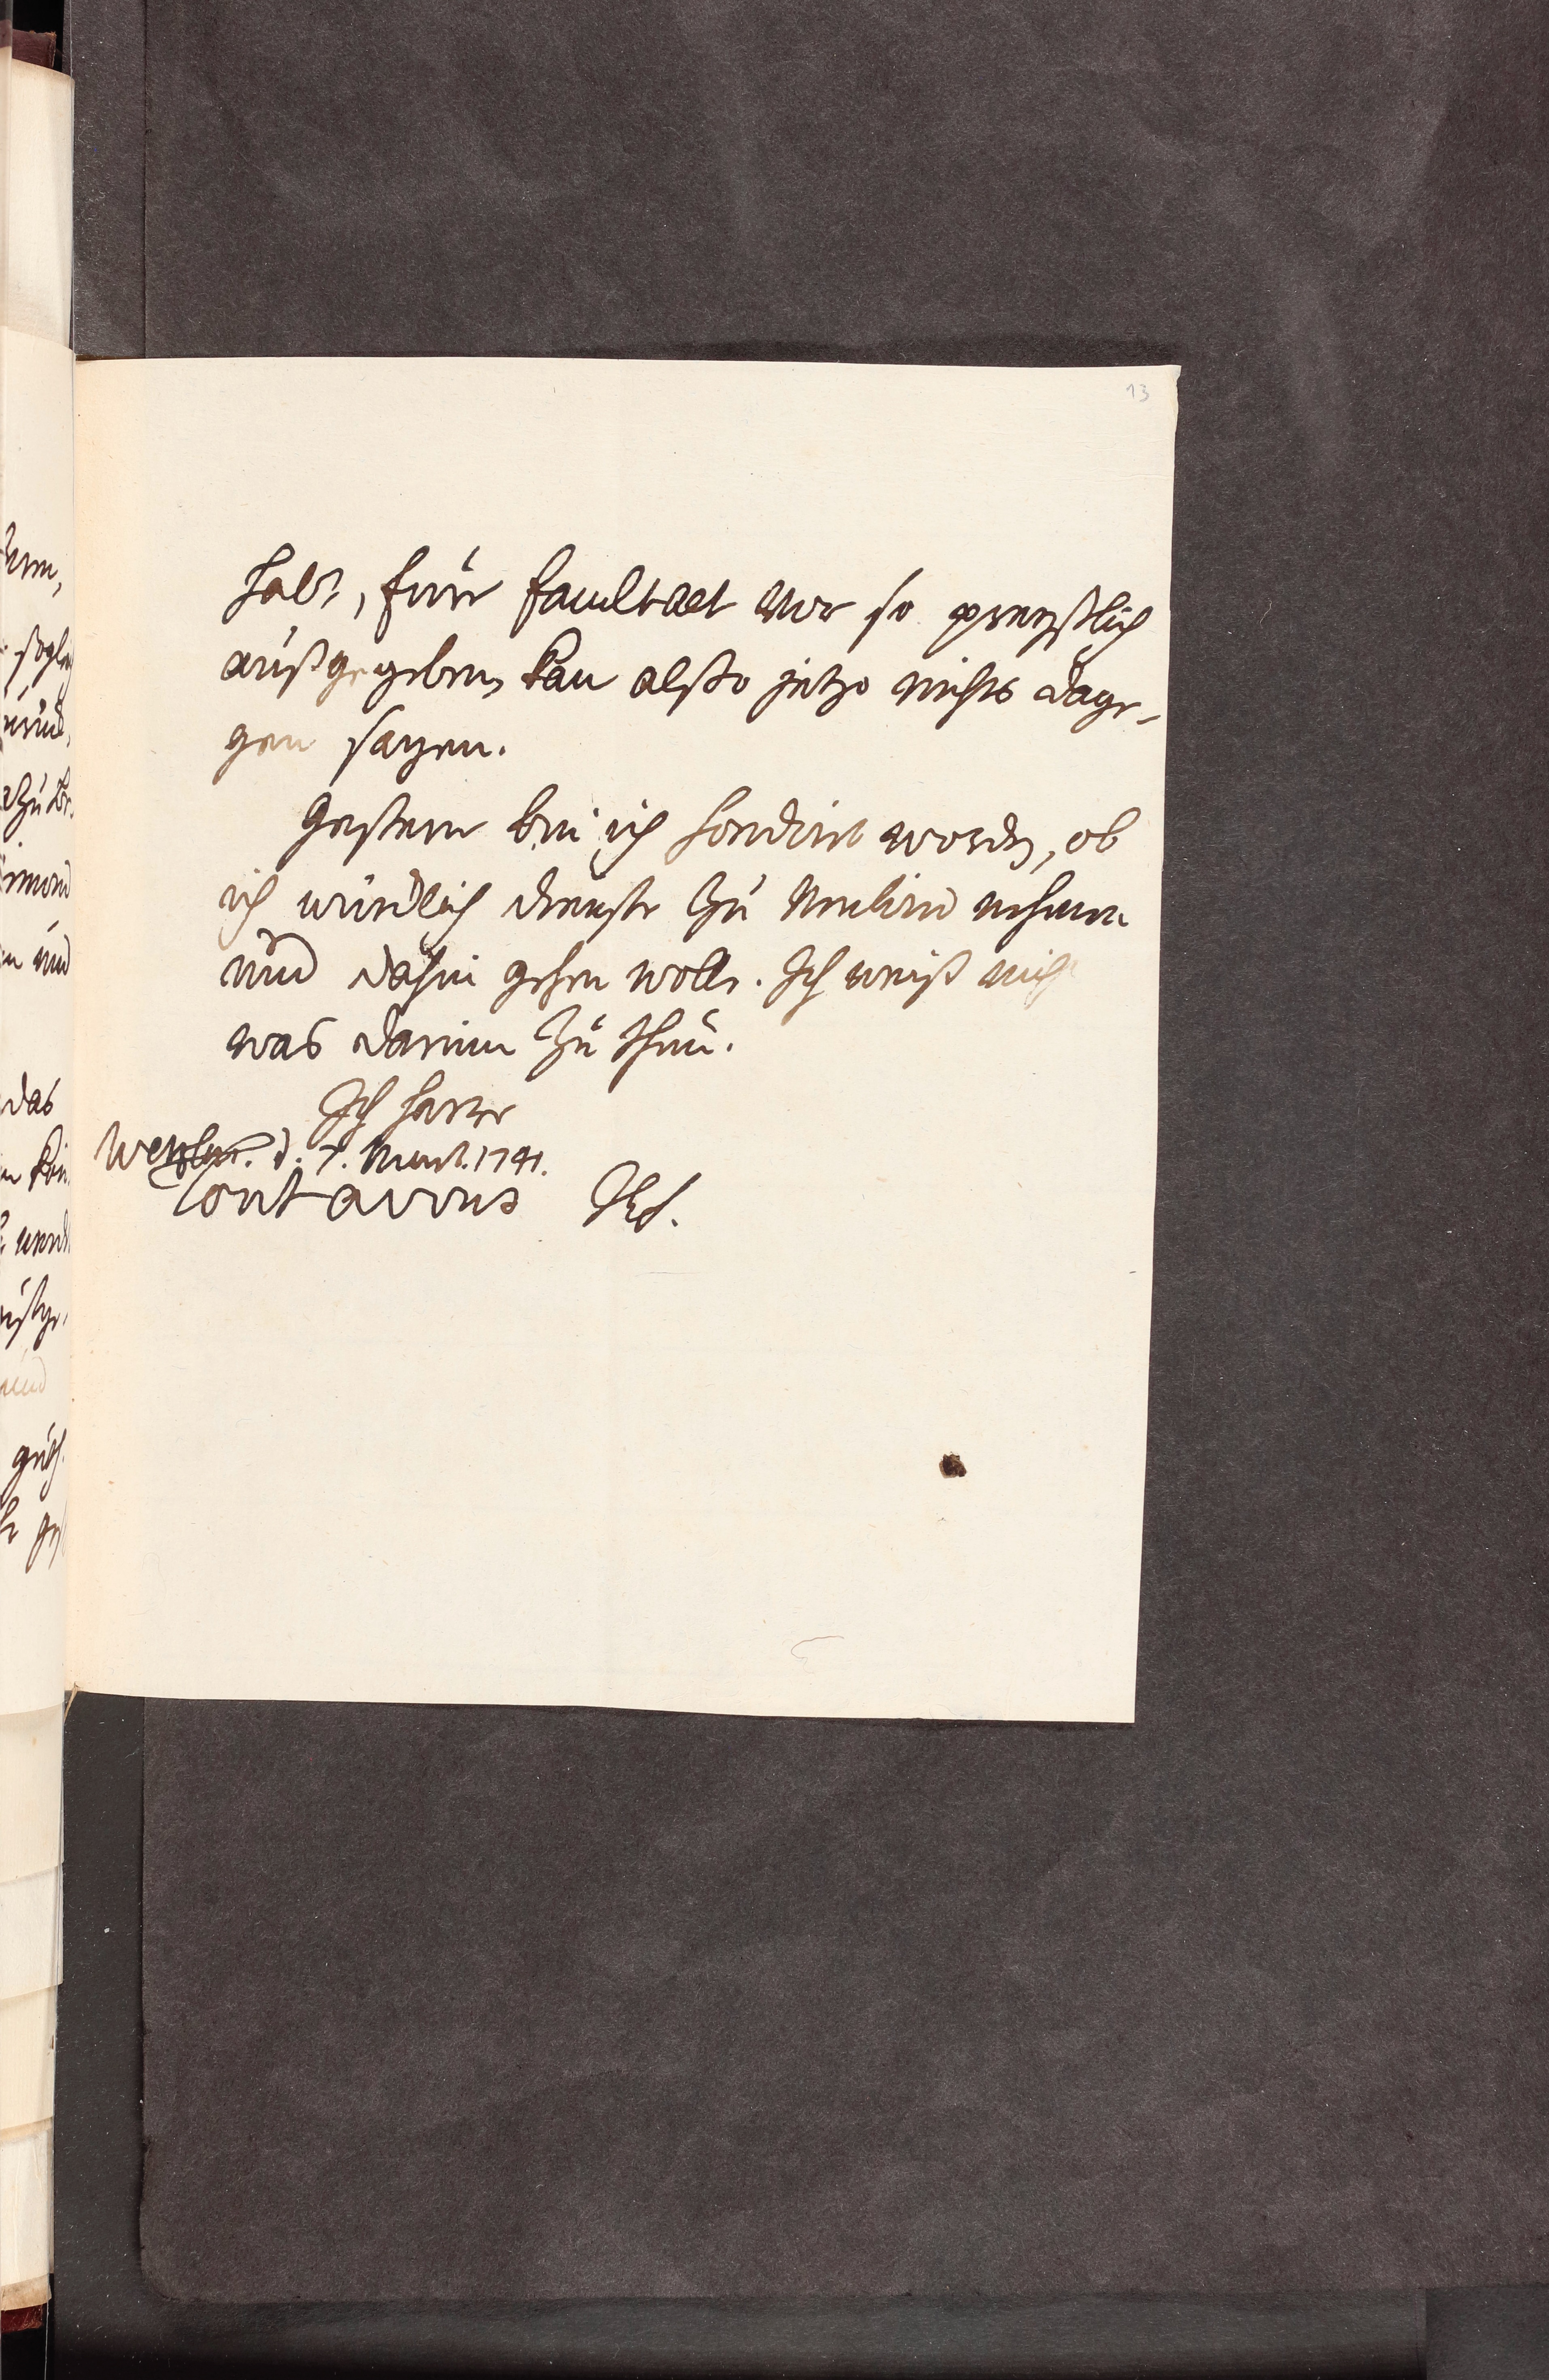 13
habe, Eure Facultaet vor so preyßlich
außgegeben, kan alßo jetzo nichts dage-
gen sagen.
Gestern bin ich sondirt worden, ob
ich würcklich dienste zu nehmen
und dahin gehen wolle. Ich weiß nicht
was darinn zu thun.
Ich harre
Wetzlar. d. 7. 1741.
tout a vous